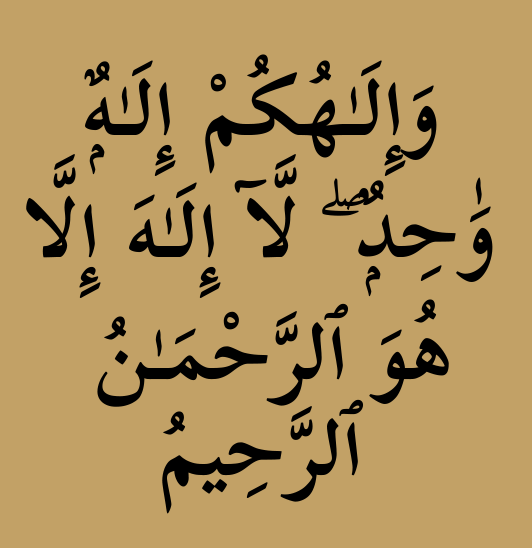 وَإِلَـٰهُكُمْ إِلَـٰهٌۭ
وَٰحِدٌۭ ۖ لَّآ إِلَـٰهَ إِلَّا
هُوَ ٱلرَّحْمَـٰنُ
ٱلرَّحِيمُ